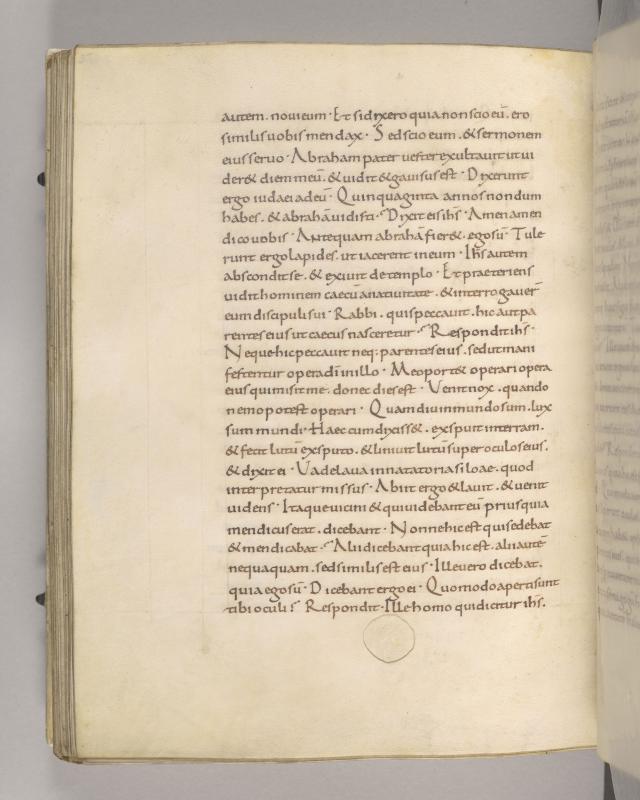 autem. novi eum · Et si dixero quia non scio eū. ero
similis vobis mendax · Sed scio eum. & sermonem
eius servo · Abraham pater vester exultavit ut vi
der& diem meū. & vidit & gavisus est · Dixerunt
ergo iudaei ad eū · Quinquaginta annos nondum
habes. & abrahā vidisti · Dixit eis ihs̄ · Amen amen
dico vobis · Antequam abrahā fier&. ego sū · Tule
runt ergo lapides. ut iacerent in eum · Ihs̄ autem
abscondit se. & exivit de templo · Et praeteriens
vidit hominem caecū a nativitate. & interrogaver̄
eum discipuli sui · Rabbi. quis peccavit. hic aut pa
rentes eius ut caecus nasceretur · Respondit ihs̄ ·
Neque hic peccavit neq; parentes eius. sed ut mani
festentur opera dī in illo · Me oport& operari opera
eius qui misit me. donec dies est · Venit nox. quando
nemo potest operari · Quamdiu in mundo sum. lux
sum mundi · Haec cum dixiss&. expuit in terram.
& fecit lutū ex sputo. & linivit lutū super oculos eius.
& dixit ei · Vade lava in natatoria siloae. quod
interpretatur missus · Abiit ergo & lavit. & venit
videns · Itaque vicini & qui videbant eū prius quia
mendicus erat. dicebant · Nonne hic est qui sedebat
& mendicabat · Alii dicebant quia hic est. alii autē
nequaquam. sed similis est eius · Ille vero dicebat.
quia ego sū · Dicebant ergo ei · Quomodo aperti sunt
tibi oculi · Respondit · Ille homo qui dicitur ihs̄.